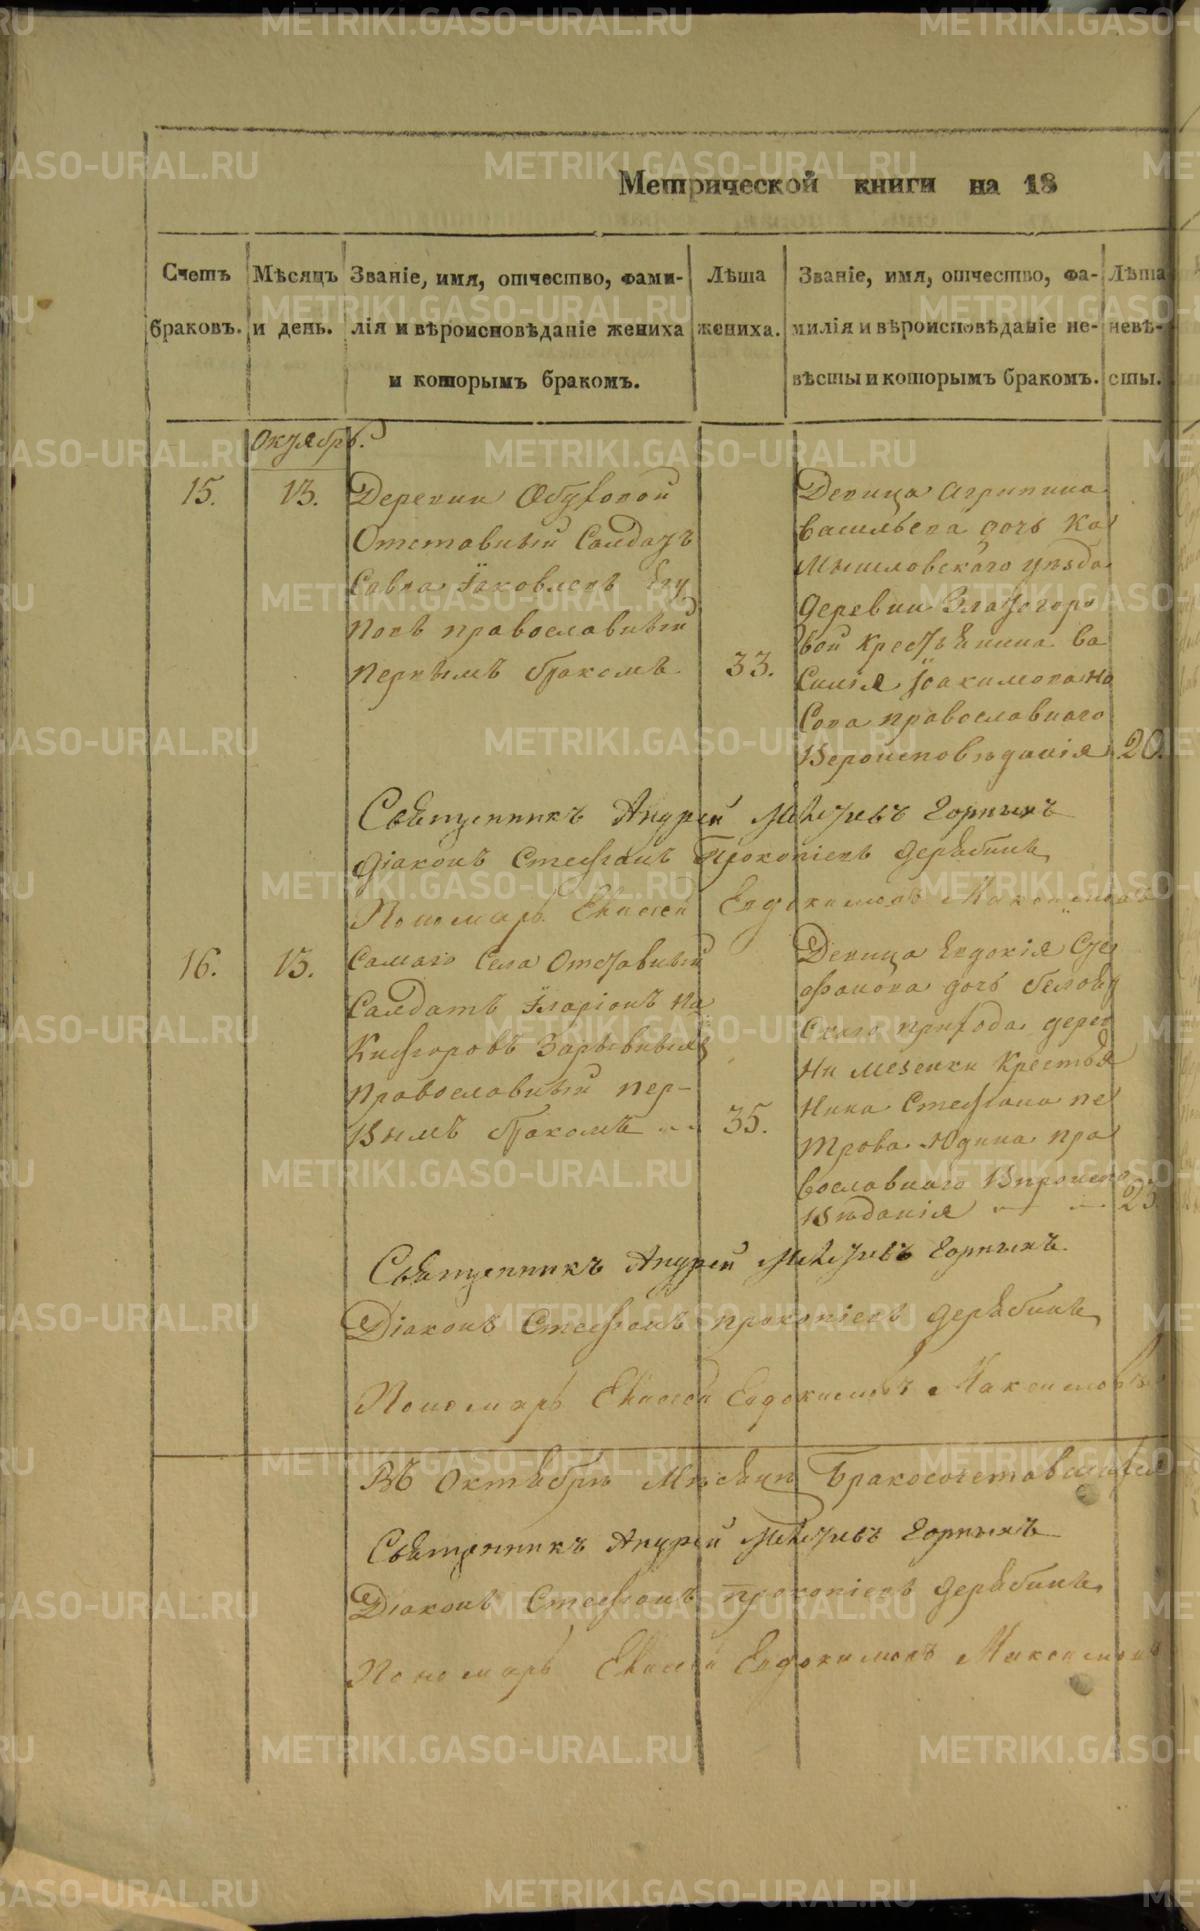 Метрической книги на 18
Счетъ браковъ.
Мѣсяцъ и день.
Званіе, имя, отчество, фами-
лія и вѣроисповѣданіе жениха
и которымъ бракомъ.
Лѣта
жениха.
Званіе, имя, отчество, фа-
милія и вѣроисповѣданіе не-
вѣсты и которымъ бракомъ.
Лѣта
невѣ-
сты.
Октябрь.
15.
13.
Деревни Обуховой
Отставный Салдатъ
Савва Іаковлевъ
православный
первымъ бракомъ
33.
Девица Агрипина
Васильева дочь Ка
мышловскаго уѣзда
деревни Златогоро
вой крестьянина Ва
силія Іоакимова
православнаго
Вероисповѣданія
20.
Священникъ Андрей Горныхъ
Діаконъ Стефанъ Прокопіевъ Дерябинъ
Пономарь Евдокимовъ Максимовъ
16.
13.
Самаго Села Отставный
Салдатъ Иларіонъ Ни
кифоровъ
Православный пер-
вымъ бракомъ
35.
Девица Евдокія Сте
фанова дочь Белояр
скаго прихода дерев
ни Мезенки Крестья
нина Стефана Пе
трова Юдина пра
вославнаго Вероиспо
вѣданія
25.
Священникъ Андрей Горныхъ.
Діаконъ Стефанъ Прокопіевъ Дерябинъ
Пономарь Евдокимовъ Максимовъ
Въ Октябрѣ Мѣсяцѣ Бракосочетавшихся
Священникъ Андрей Горныхъ
Діаконъ Стефанъ Прокопіевъ Дерябинъ
Пономарь Евдокимовъ Максимовъ
METRIKI.GASO-URAL.RU